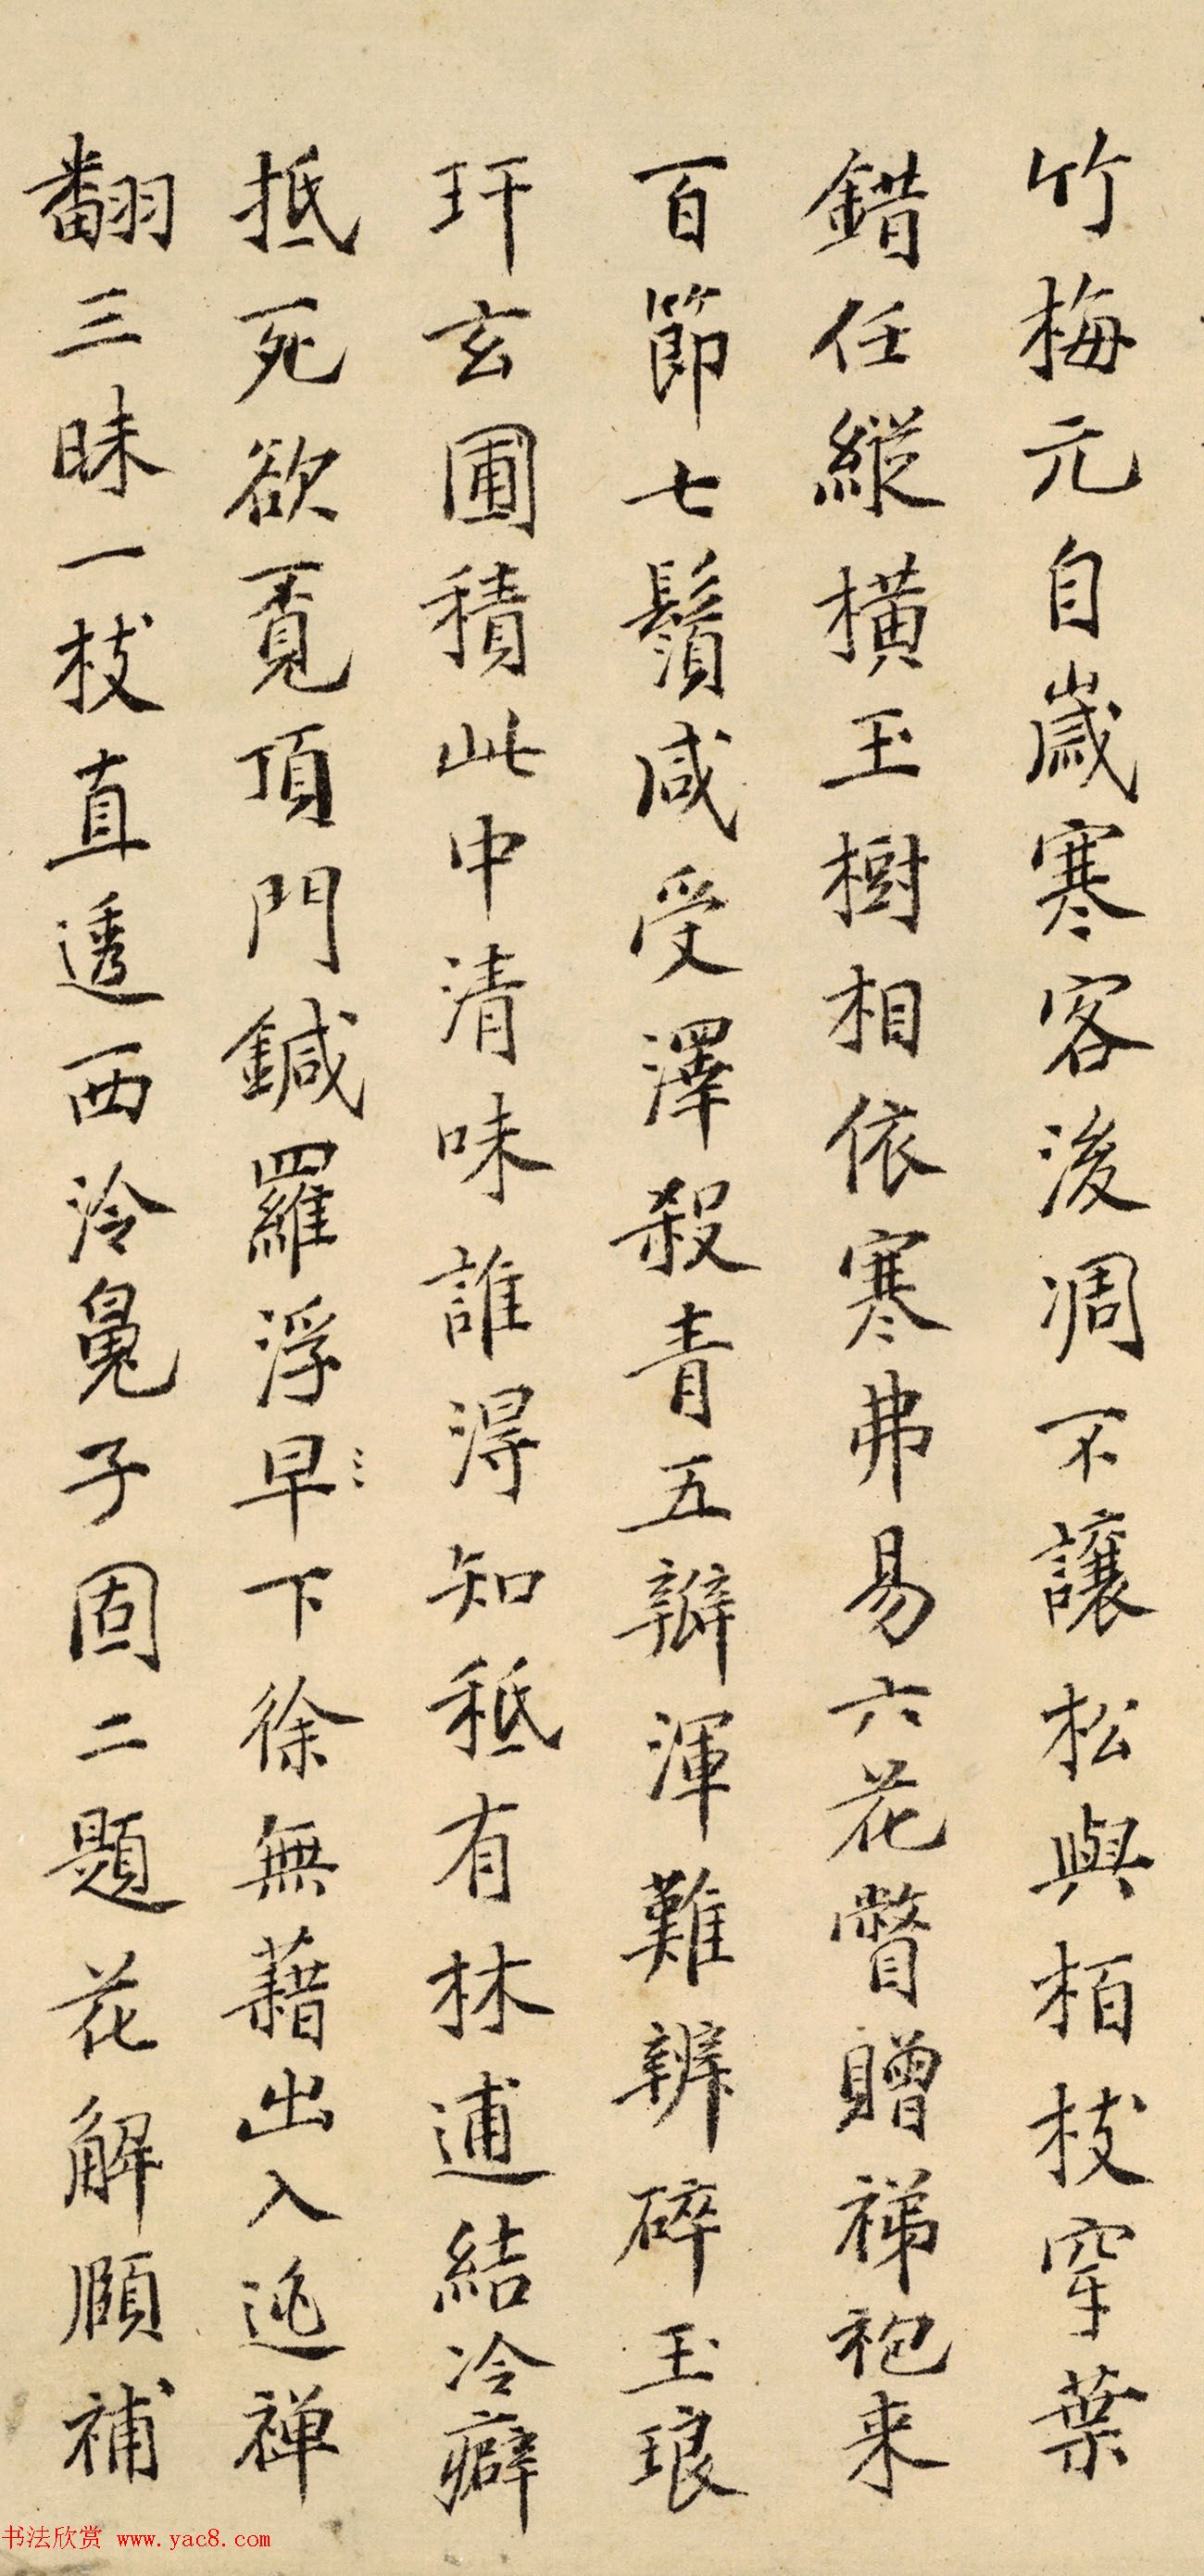 竹梅元自歲寒客後凋不讓松與栢枝穿葉
錯任縱橫玉樹相依寒弗易六花瞥贈祶袍来
百節七鬚咸受澤殺青五瓣渾難辨碎玉琅
玕玄圃積此中清味誰得知秪有林逋結冷癖
抵死欲覔頂門鍼羅浮早下徐無藉出入逃禅
翻三昧一枝直透西泠鼌子固二題花解頤補
书法欣赏 www.yac8.com